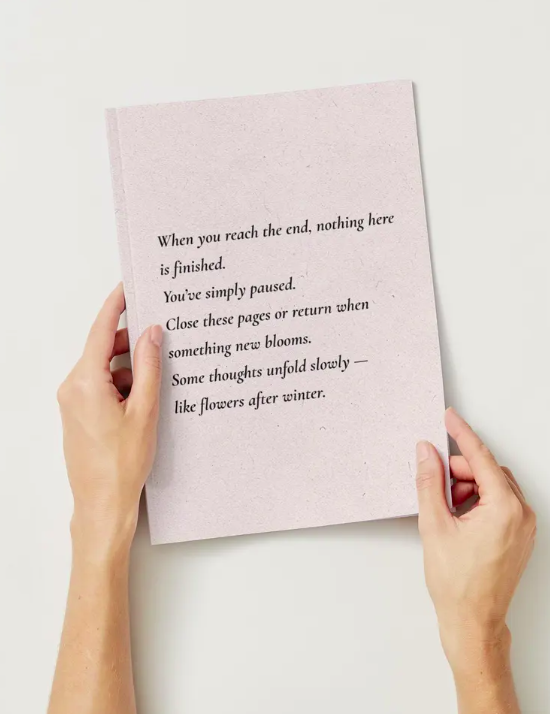 When you reach the end, nothing here
is finished.
You've simply paused.
Close these pages or return when
something new blooms.
Some thoughts unfold slowly —
like flowers after winter.